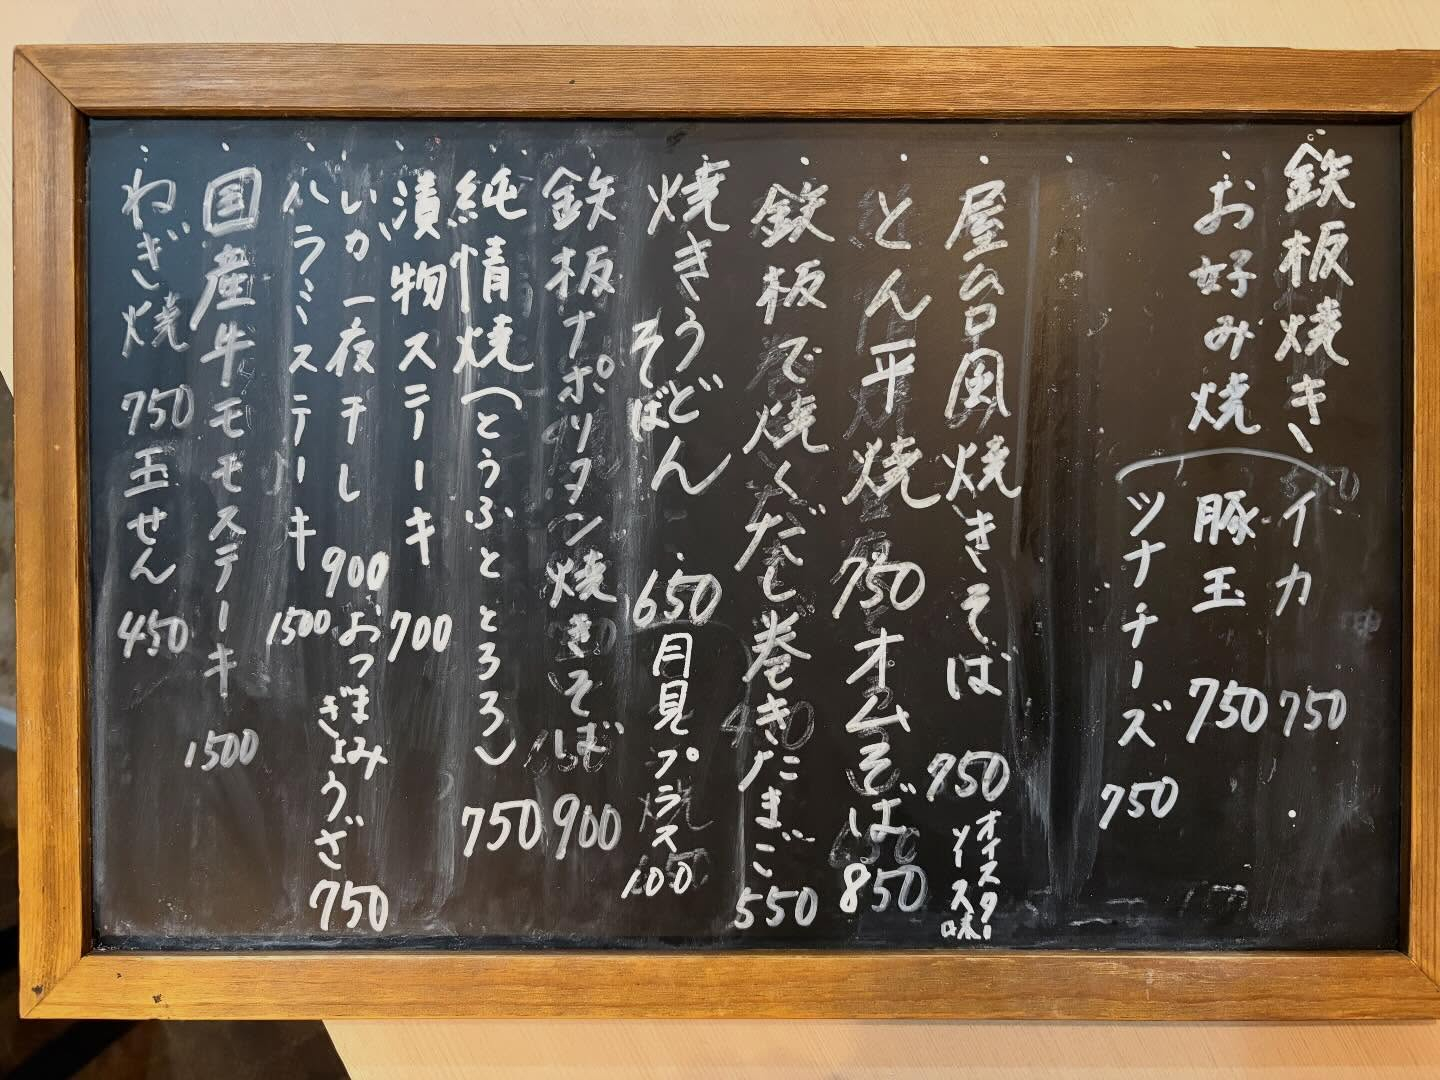 鉄板焼き
お好み焼
イカ 750
豚玉 750
ツナチーズ 750
屋台風焼きそば 750
オイスターソース味
とん平焼 750
オムそば 850
鉄板で焼くだし巻きたまご 550
焼きうどん
そば
650
月見プラス 100
鉄板ナポリタン焼きそば 900
純情焼(とうふととろろ) 750
漬物ステーキ 700
いか一夜干し 900
おつまみぎょうざ 750
ハラミステーキ 1500
国産牛モモステーキ 1500
ねぎ焼 750
玉せん 450